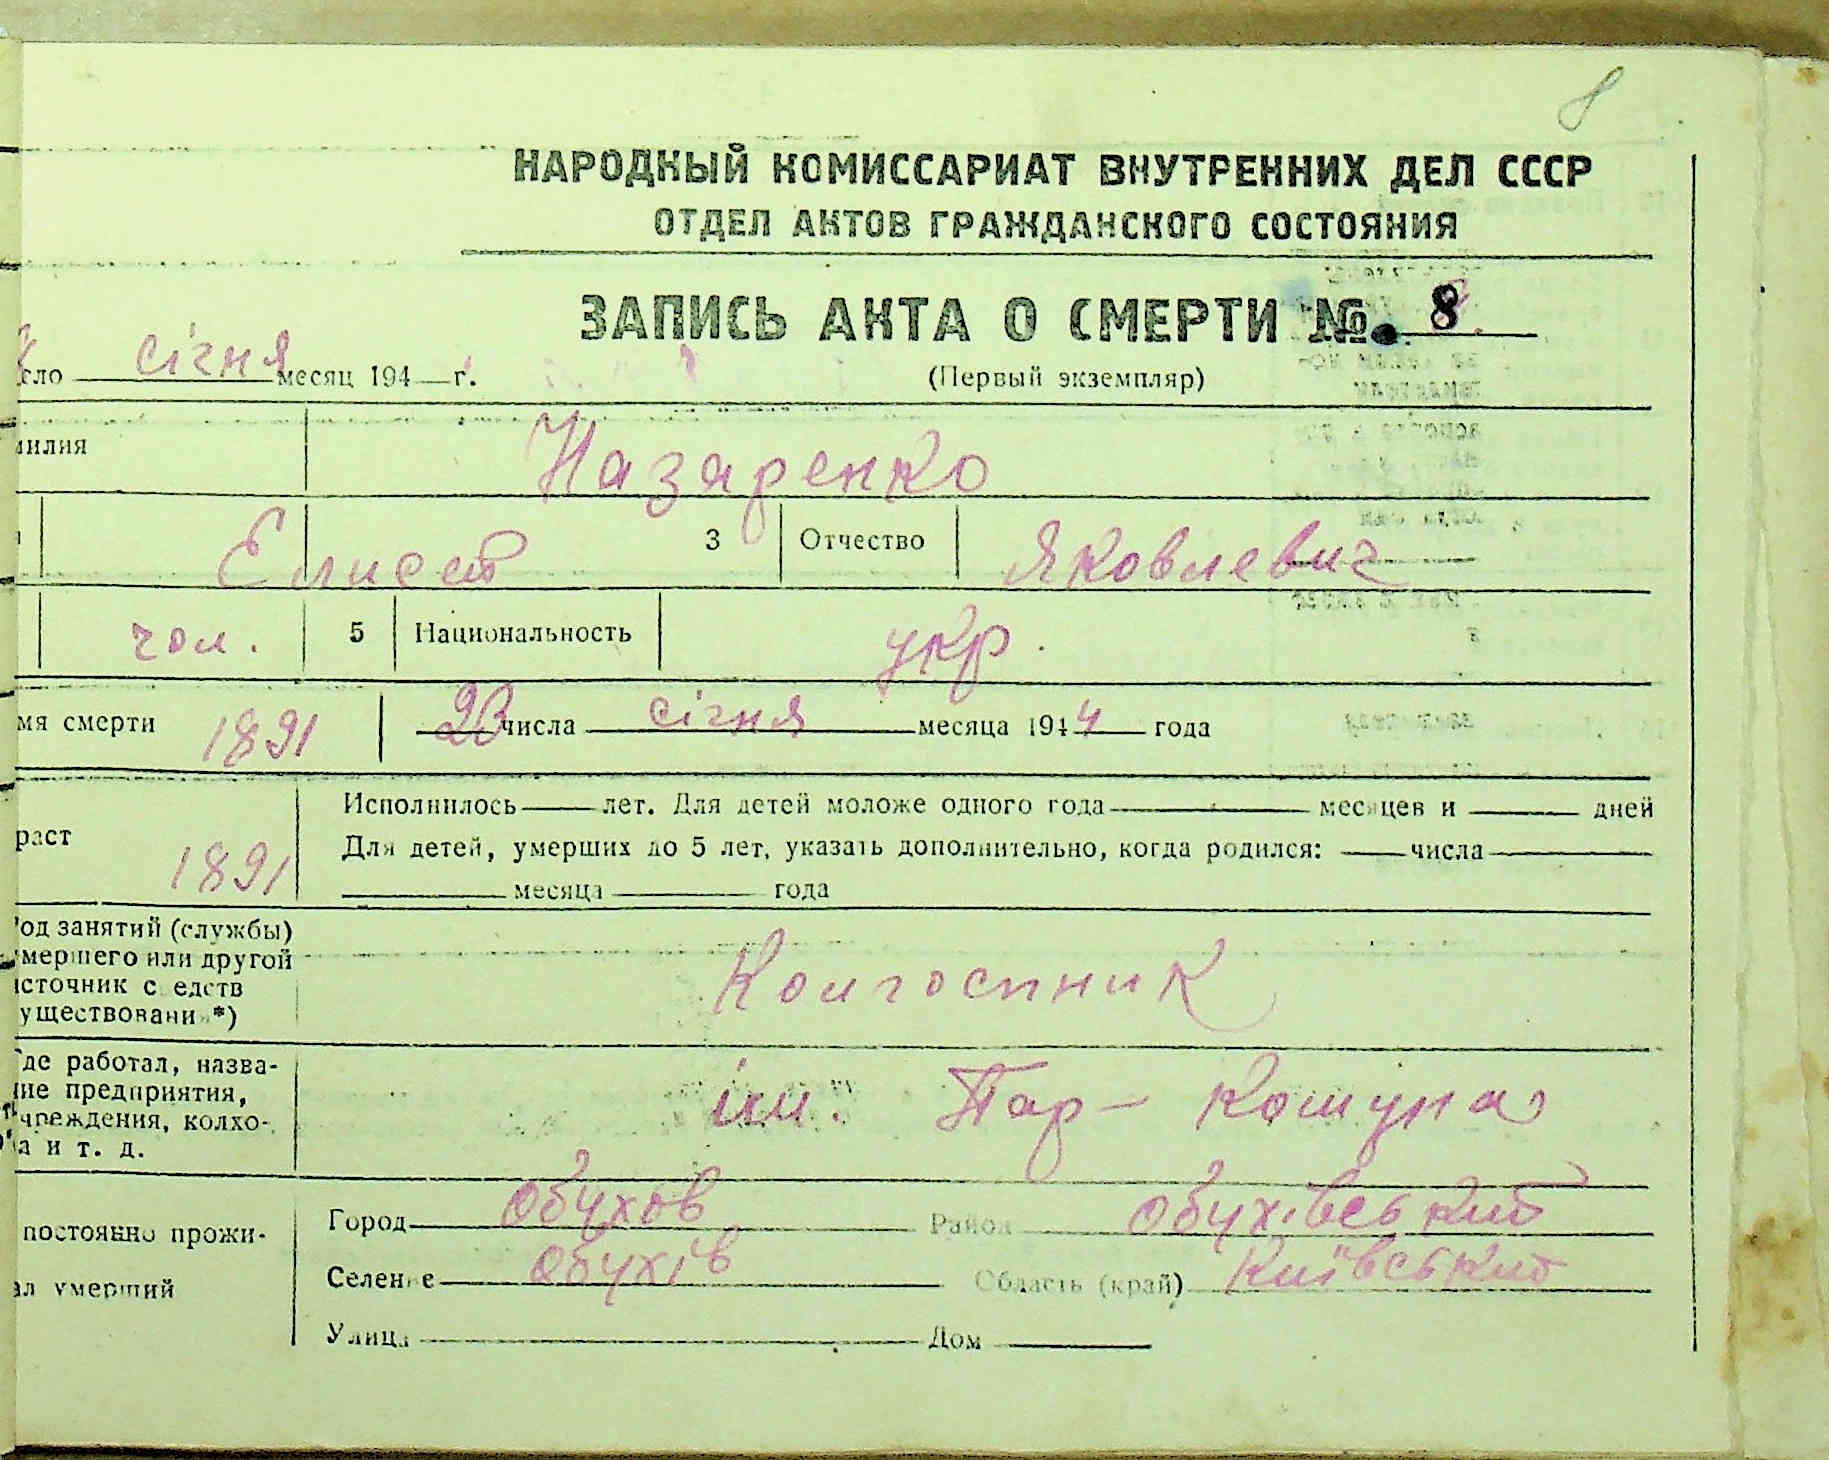 8
НАРОДНЫЙ КОМИССАРИАТ ВНУТРЕННИХ ДЕЛ СССР
ОТДЕЛ АКТОВ ГРАЖДАНСКОГО СОСТОЯНИЯ
ЗАПИСЬ АКТА О СМЕРТИ № 8
сло січня месяц 194 г. (Первый экземпляр)
милия Назаренко
Елисей 3 Отчество Яковлевич
чол. 5 Национальность укр.
мя смерти 1891 числа січня месяца 1944 года
раст 1891 Исполнилось лет. Для детей моложе одного года месяцев и дней
Для детей, умерших до 5 лет, указать дополнительно, когда родился: числа
месяца года
од занятий (службы)
мершего или другой
сточник средств
уществовани *)
Колгоспник
де работал, назва-
ие предприятия,
чреждения, колхо-
а и т. д.
ім. Пар-Комуна
постоянно прожи-
ал умерший
Город Обухов Район Обухівський
Селение Обухів Область (край) Київський
Улица Дом